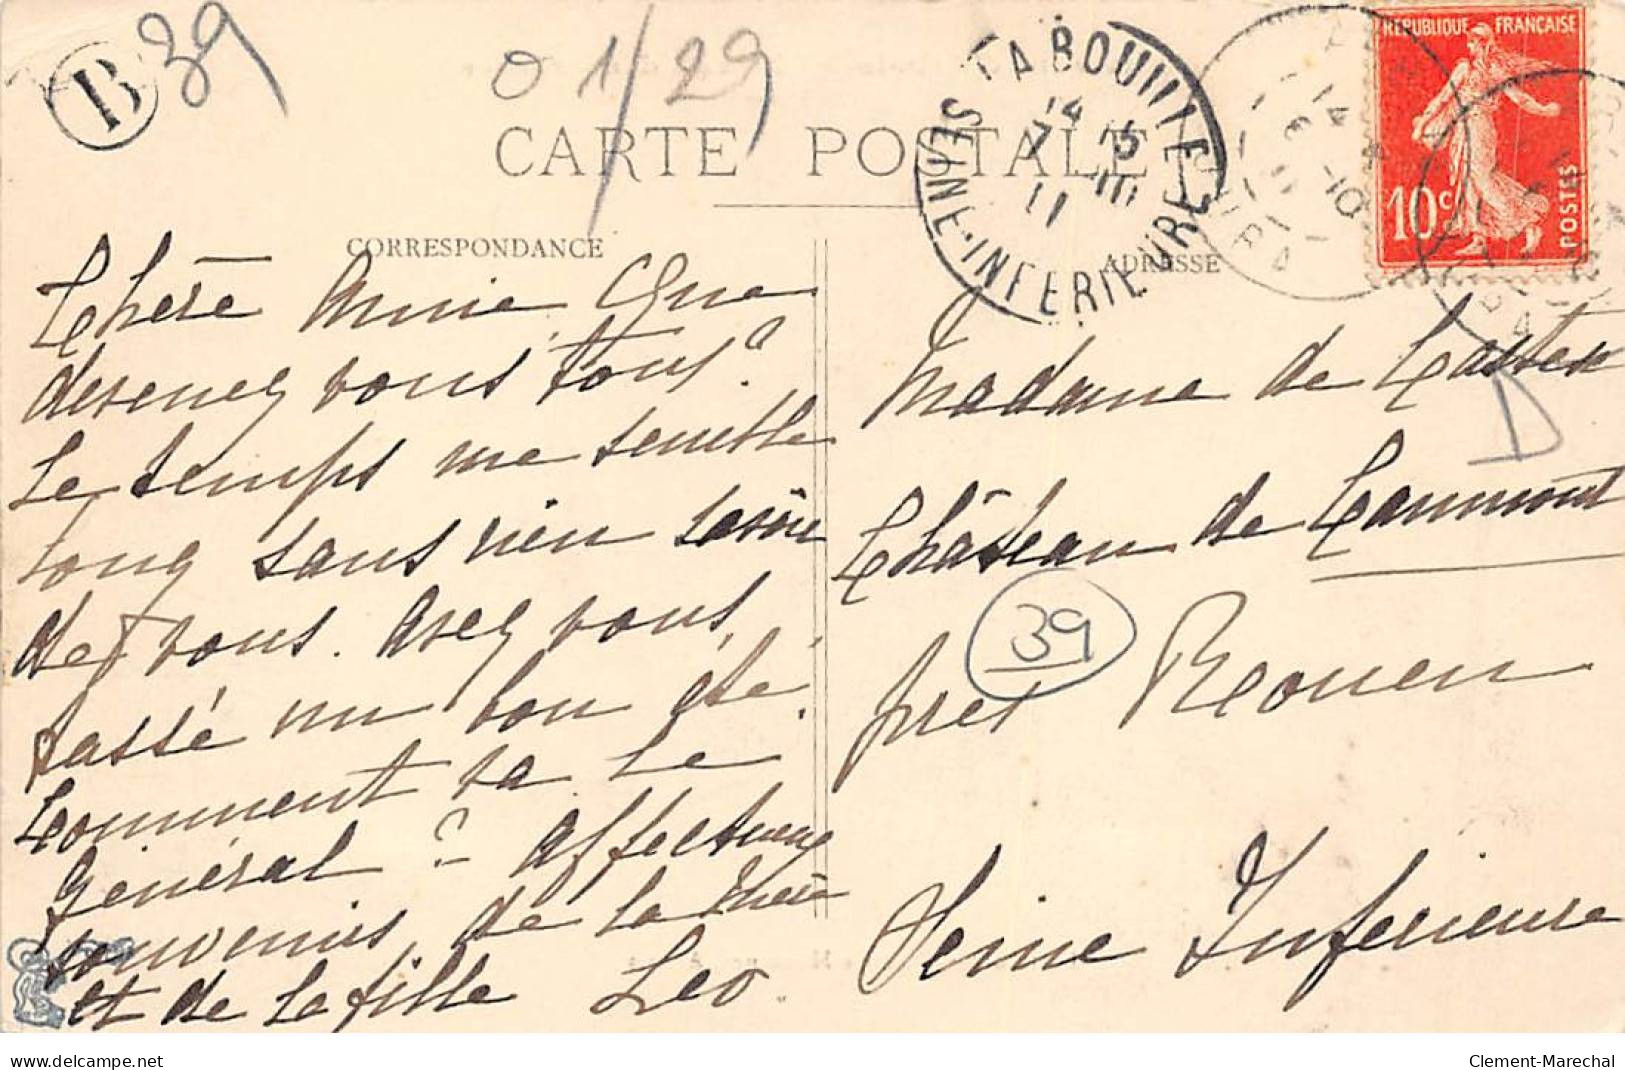 B
39
0 1/29
CARTE POSTALE
CORRESPONDANCE
ADRESSE
LA BOUILLE
14 15
7 -10
11
SEINE-INFERIEURE
REPUBLIQUE FRANÇAISE
10c
POSTES
Chère Annie, Que
devenez vous tous?
Le temps me semble
long sans rien savoir
de vous. Avez vous
passé un bon été.
Comment va le
Général? Affectueux
souvenirs de la mère
et de la fille Leo
Madame de Castex
Château de Caumont
39
près Rouen
Seine Inférieure
D
delcampe.net
Clement-Marechal